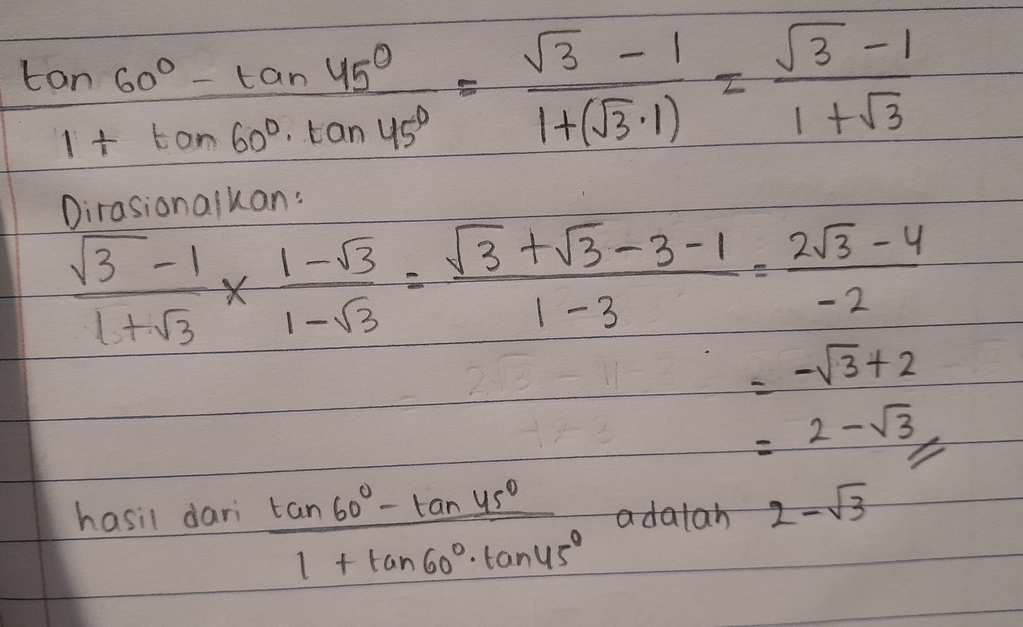 tan 60° - tan 45° / 1 + tan 60°. tan 45° = √3 - 1 / 1+(√3·1) = √3 - 1 / 1 + √3
Dirasionalkan:
√3 - 1 / 1+√3 × 1-√3 / 1-√3 = √3 + √3 - 3 - 1 / 1 - 3 = 2√3 - 4 / -2
= -√3 + 2
= 2 - √3 //
hasil dari tan 60° - tan 45° / 1 + tan 60°. tan 45° adalah 2 - √3